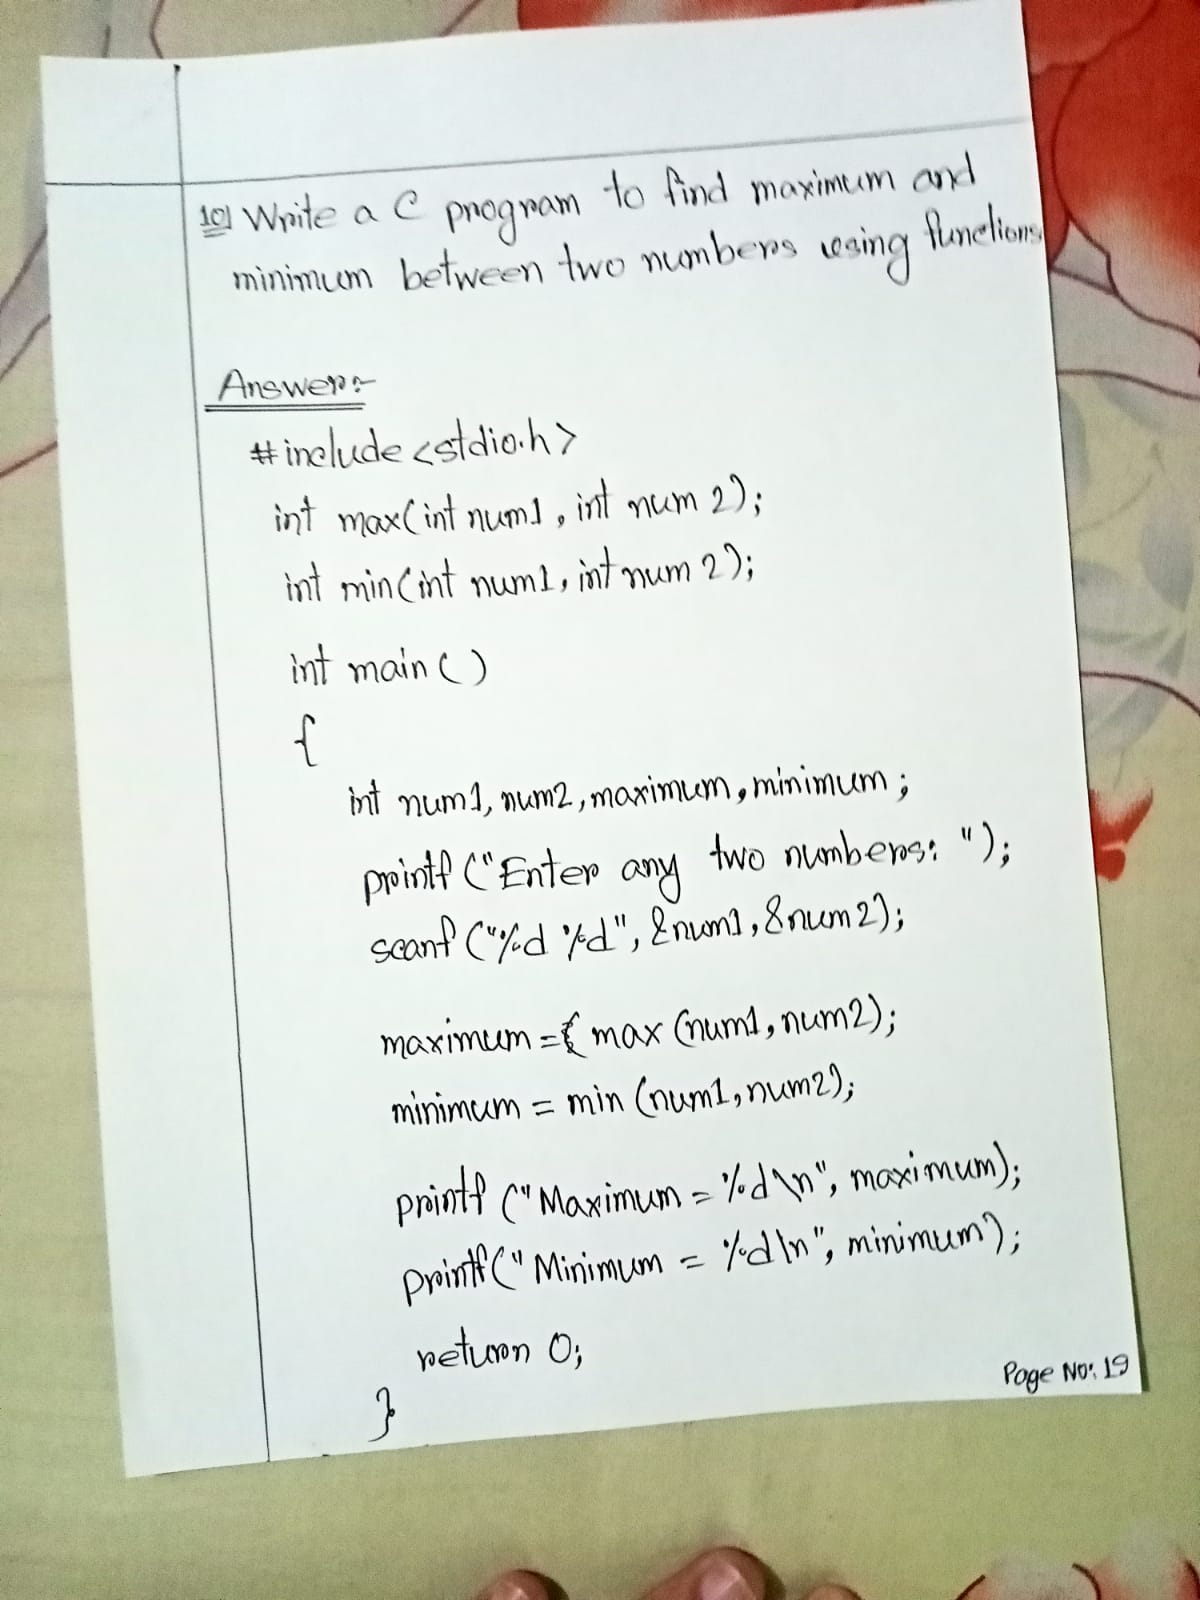 10) Write a C program to find maximum and
minimum between two numbers using functions
Answer:-
#include <stdio.h>
int max(int num1, int num 2);
int min(int num1, int num 2);
int main()
{
int num1, num2, maximum, minimum;
printf ("Enter any two numbers: ");
scanf ("%d %d", &num1, &num2);
maximum = max (num1, num2);
minimum = min (num1, num2);
printf ("Maximum = %d\n", maximum);
printf("Minimum = %d\n", minimum);
return 0;
}
Page No: 19